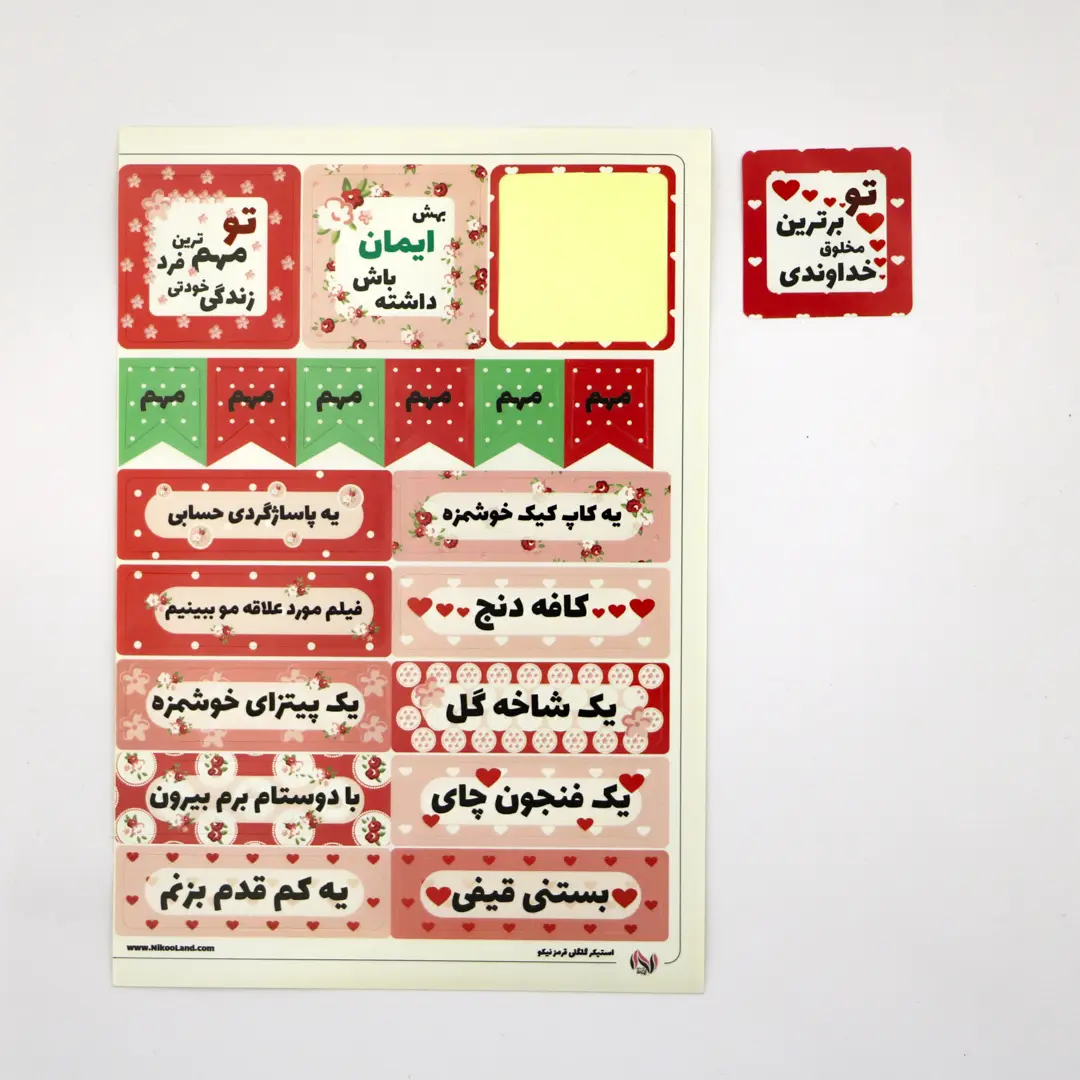 تو
مهم ترین
فرد
زندگی خودتی
بهش
ایمان
باش
داشته
تو
برترین
مخلوق
خداوندی
مهم
مهم
مهم
مهم
مهم
مهم
یه کاپ کیک خوشمزه
یه پاساژگردی حسابی
کافه دنج
فیلم مورد علاقه مو ببینیم
یک شاخه گل
یک پیتزای خوشمزه
یک فنجون چای
با دوستام برم بیرون
بستنی قیفی
یه کم قدم بزنم
استیکر گلگلی قرمز نیکو
www.NikooLand.com